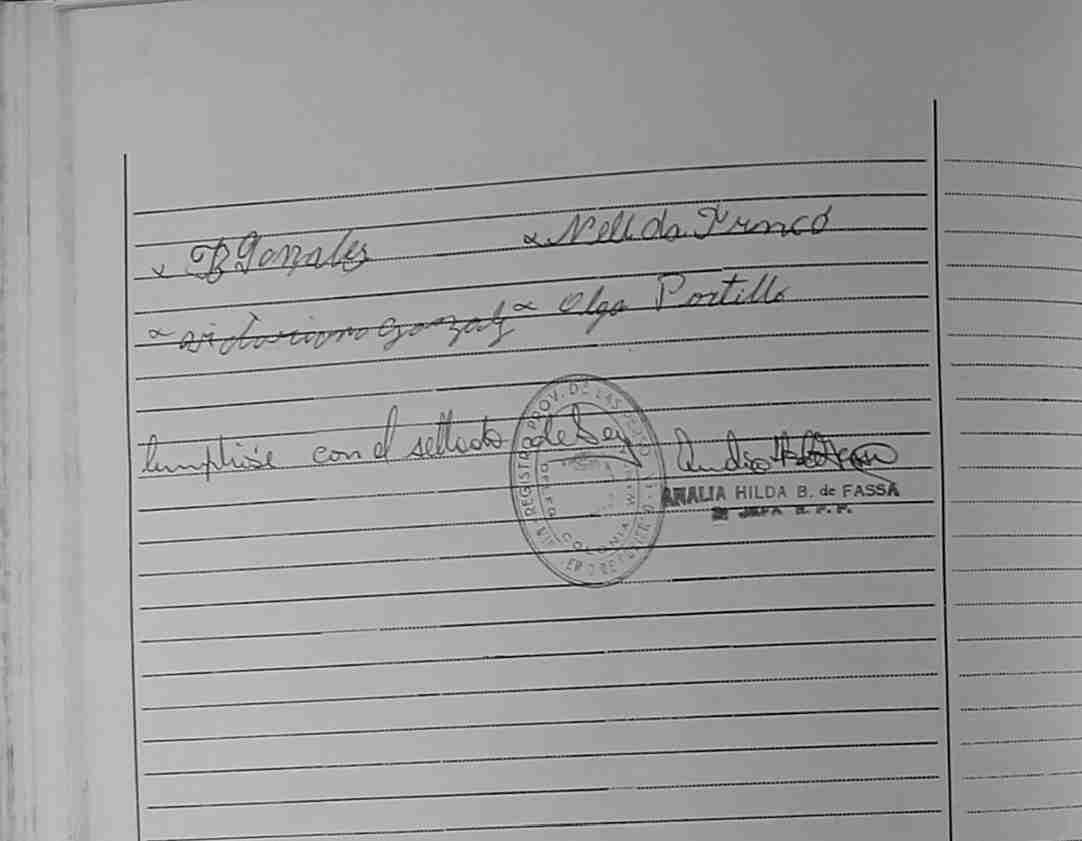 x B Gonzales x Nelida Franco
x victoriano gonzalez x Olga Portillo
Cumplióse con el sellado de Ley
REGISTRO PROV. DE LAS COLONIA
ANALIA HILDA B. de FASSA
JEFA R. P. P.